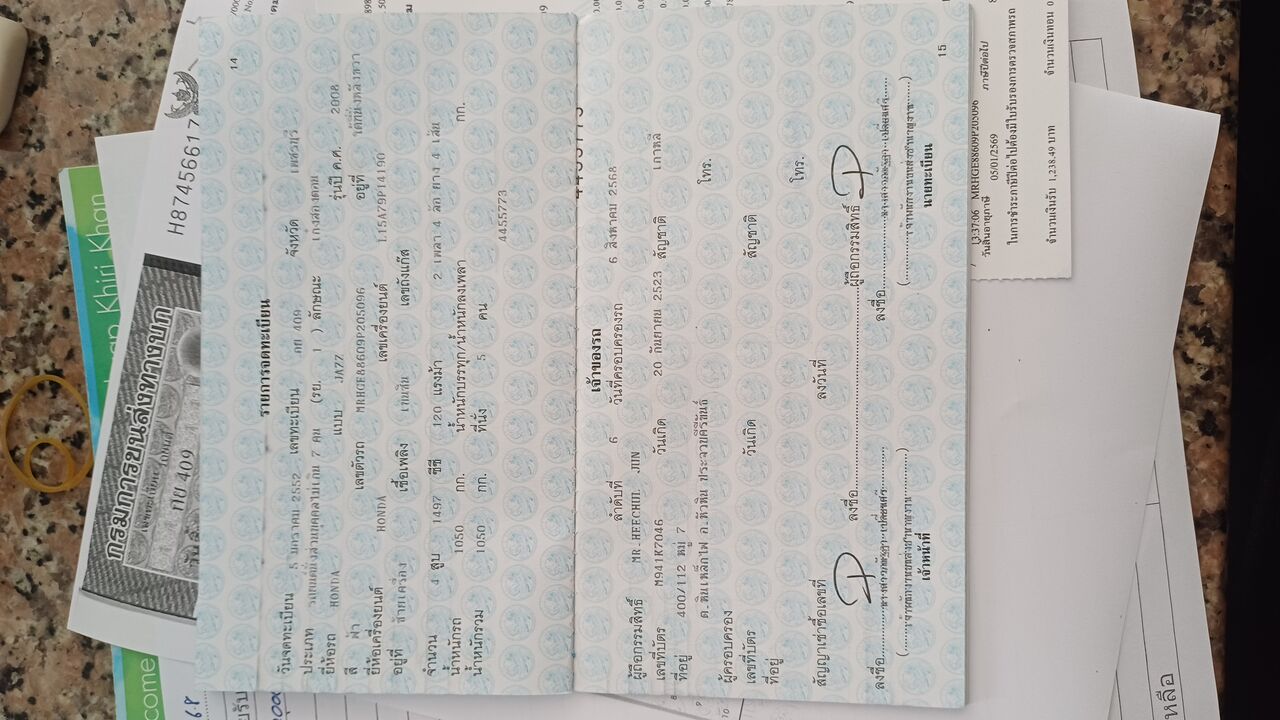 14
รายการจดทะเบียน
วันจดทะเบียน 5 มกราคม 2552 เลขทะเบียน กย 409 จังหวัด เพชรบุรี
ประเภท รถยนต์นั่งส่วนบุคคลไม่เกิน 7 คน (รย. 1 ) ลักษณะ เก๋งสองตอน
ยี่ห้อรถ HONDA แบบ JAZZ รุ่นปี ค.ศ. 2008
สี ฟ้า เลขตัวรถ MRHGE88609P205096 อยู่ที่
ยี่ห้อเครื่องยนต์ HONDA เลขเครื่องยนต์ L15A79P14190
อยู่ที่ ซ้ายเครื่อง เชื้อเพลิง เบนซิน เลขถังแก๊ส
จำนวน 4 สูบ 1497 ซีซี 120 แรงม้า 2 เพลา 4 ล้อ ยาง 4 เส้น
น้ำหนักรถ 1050 กก. น้ำหนักบรรทุก/น้ำหนักลงเพลา กก.
น้ำหนักรวม 1050 กก. ที่นั่ง 5 คน
4455773
เจ้าของรถ
ลำดับที่ 6 วันที่ครอบครองรถ 6 สิงหาคม 2568
ผู้ถือกรรมสิทธิ์ MR.HEECHUL JIN
เลขที่บัตร M941K7046 วันเกิด 20 กันยายน 2523 สัญชาติ เกาหลี
ที่อยู่ 400/112 หมู่ 7 โทร.
ต.หินเหล็กไฟ อ.หัวหิน ประจวบคีรีขันธ์
ผู้ครอบครอง
เลขที่บัตร วันเกิด สัญชาติ
ที่อยู่ โทร.
สัญญาเช่าซื้อเลขที่ ลงวันที่
ลงชื่อ ผู้ถือกรรมสิทธิ์
ลงชื่อ ลงชื่อ
เจ้าหน้าที่ นายทะเบียน
15
กรมการขนส่งทางบก
กย 409
H87456617
Khiri Khan
come
13:37:06 MRHGE88609P205096 ภาษีปีต่อไป
วันสิ้นอายุภาษี 05/01/2569
ในการชำระภาษีปีต่อไปต้องมีใบรับรองการตรวจสภาพรถ
จำนวนเงินรับ 1,238.49 บาท จำนวนเงินทอน 0